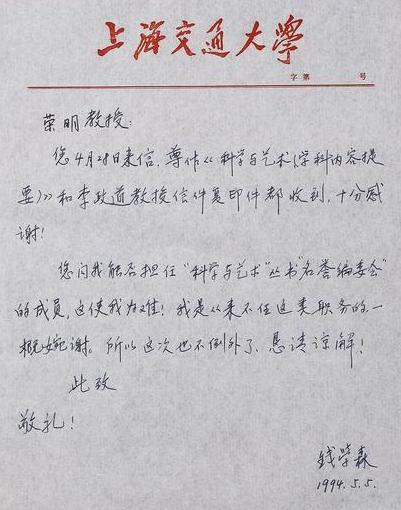 上海交通大學
字第 号
荣明教授:
您4月28日来信,尊作《科学与艺术(学科内容提
要)》和李政道教授信件复印件都收到,十分感
谢!
您问我能否担任“科学与艺术”丛书“名誉编委会”
的成员,这使我为难!我是从来不任这类职务的,一
概婉谢。所以这次也不例外了,恳请谅解!
此致
敬礼!
钱学森
1994.5.5.